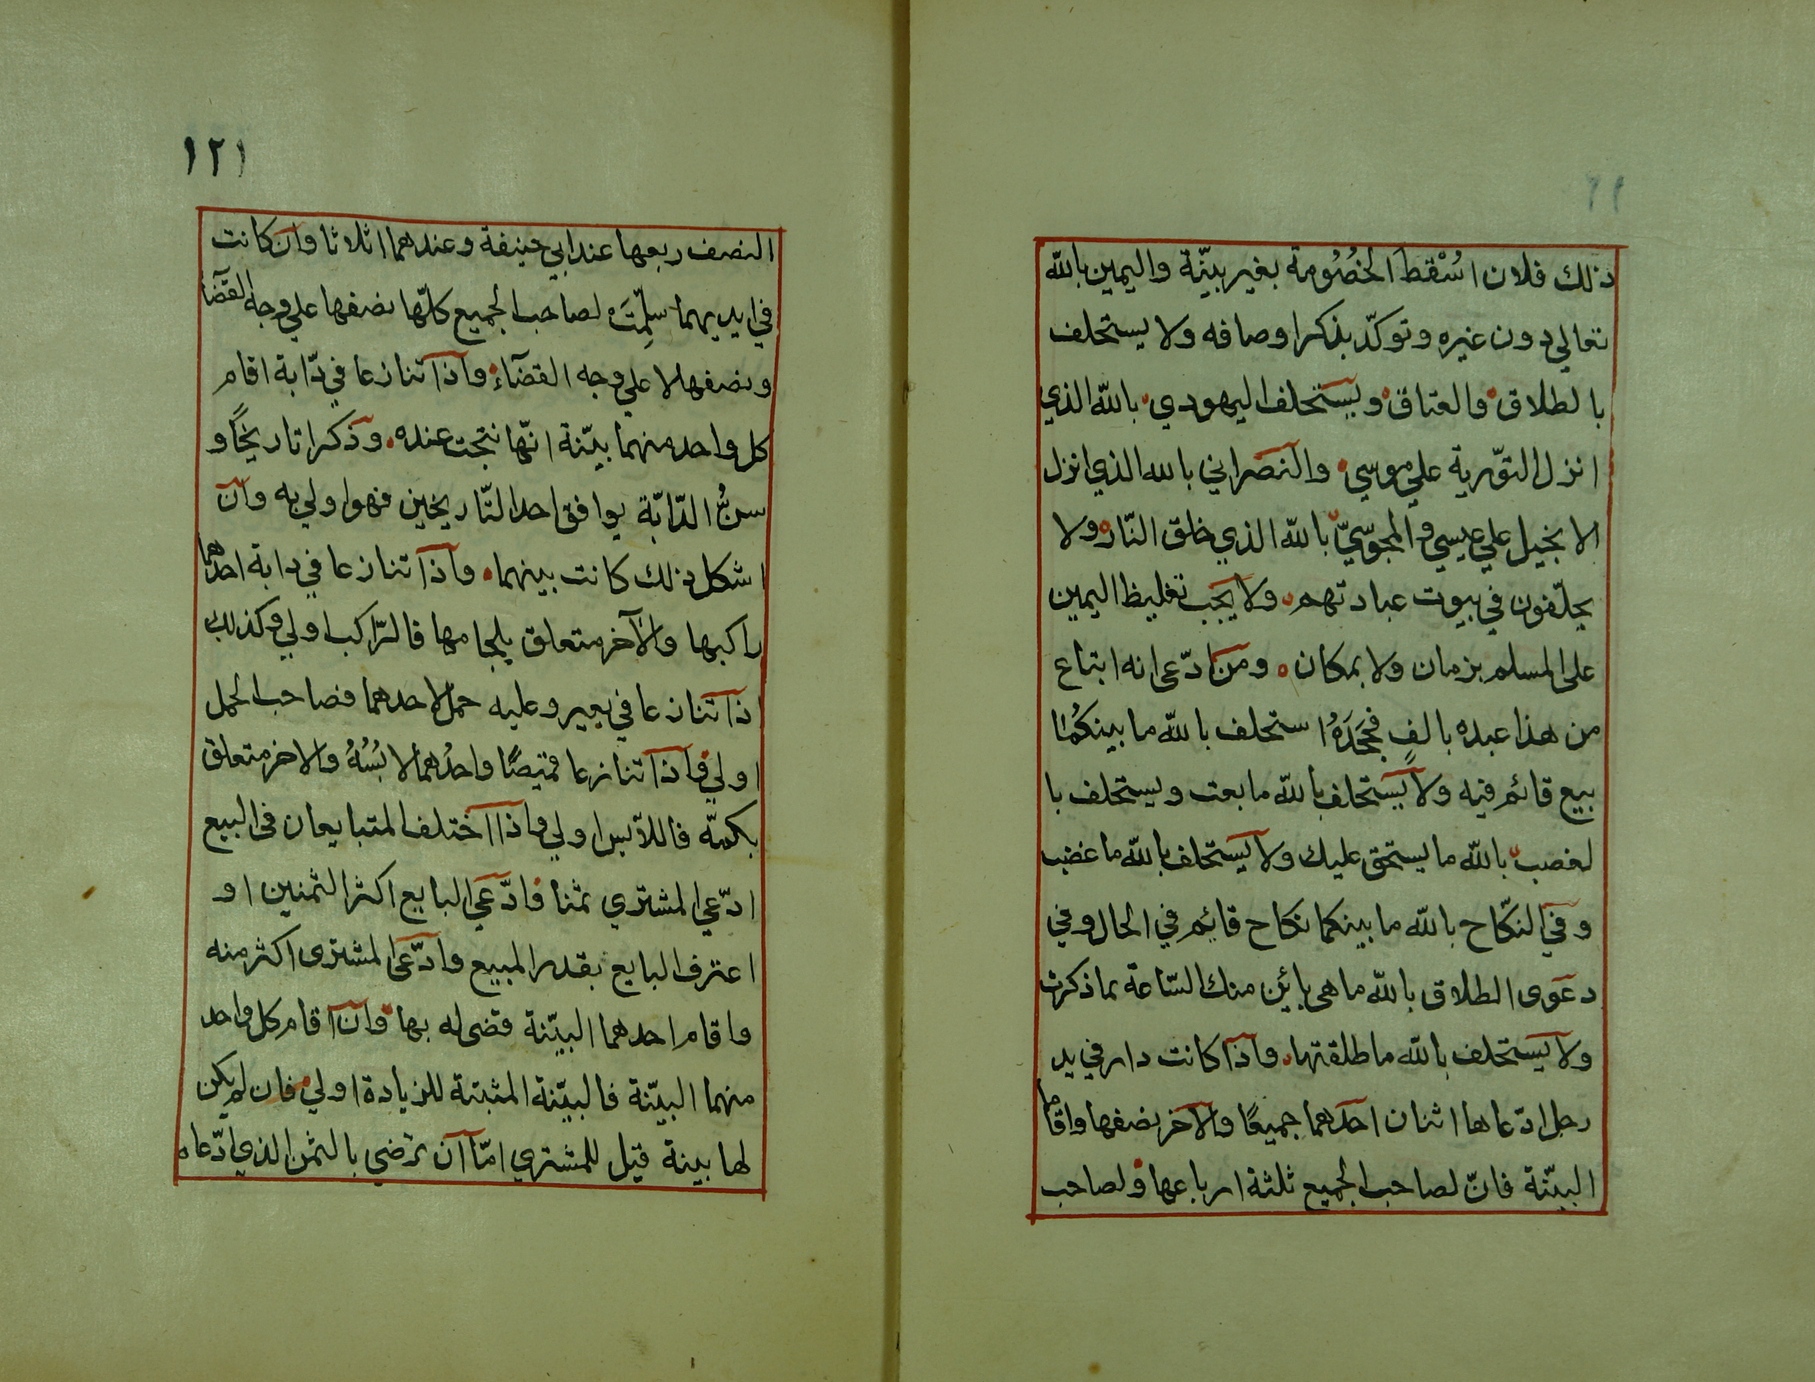 ذلك فلان اسْقط الخصُومة بغير بيّنة واليمين بالله
تعالي دون غيره وتوكّد بذكر اوصافه ولا يستحلف
بالطلاق والعتاق ويستحلف اليهودي بالله الذي
انزل التوّرية علي موسي والنصراني بالله الذي انزل
الانجيل علي عيسي والمجوسيّ بالله الذي خلق النّار ولا
يحلّفون في بيوت عبادتهم ولا يجب تغليظ اليمين
على المسلم بزمان ولا بمكان ومن ادّعى انه ابتاع
من هذا عبده بالف فجحَدَهُ استحلف بالله ما بينكمُا
بيع قائم فيه ولا يستحلف بالله ما بعت ويستحلف با
لغصب بالله ما يستحق عليك ولا يستحلف بالله ما غضب
وفي النكّاح بالله ما بينكما نكاح قايم في الحال وفي
دعوى الطلاق بالله ما هى بائن منك السّاعة بما ذكرت
ولا يستحلف بالله ما طلقتها واذا كانت دار في يد
رجل ادّعاها اثنان احدهما جميعًا والاخر نصفها واقاما
البيّنة فانّ لصاحب الجميع ثلثة ارباعها ولصاحب
١٢١
النصف ربعها عند ابي حنيفة وعندهما اثلاثا وان كانت
في ايديهما سلِّمتَ لصاحب الجميع كلّها نصفها علي وجه القضآ
ونصفها لا علي وجه القضآء واذا تنازعا في دّابة اقام
كل واحد منهما بيّنة انّها نتجت عنده وذكرا تاريخًا و
سنُّ الدّابّة يوافق احد التّاريخين فهو اولي به وان
اشكل ذلك كانت بينهما واذا تنازعا في دابة احدهما
راكبها والآخر متعلق بلجامها فالرّاكب اولي وكذلك
اذا تنازعا في بعير وعليه حمل لاحدهما فصاحب الحمل
اولي واذا تنازعا قميصًا واحدُهما لابسُهُ والاخر متعلق
بكمّه فاللاّبس اولي واذا اختلف المتبايعان في البيع
ادّعي المشتري ثمنا وادّعي البايع اكثر الثمنين او
اعترف البايع بقدر المبيع وادّعى المشترى اكثر منه
واقام احدهما البيّنة قضى له بها وان اقام كل واحد
منهما البيّنة فالبيّنة المثبتة للزيادة اولي فان لم يكن
لها بينة قيل للمشتري امّا ان ترضي بالثمن الذي ادّعاه